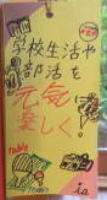 学校生活や
部活を
元気に
楽しく。